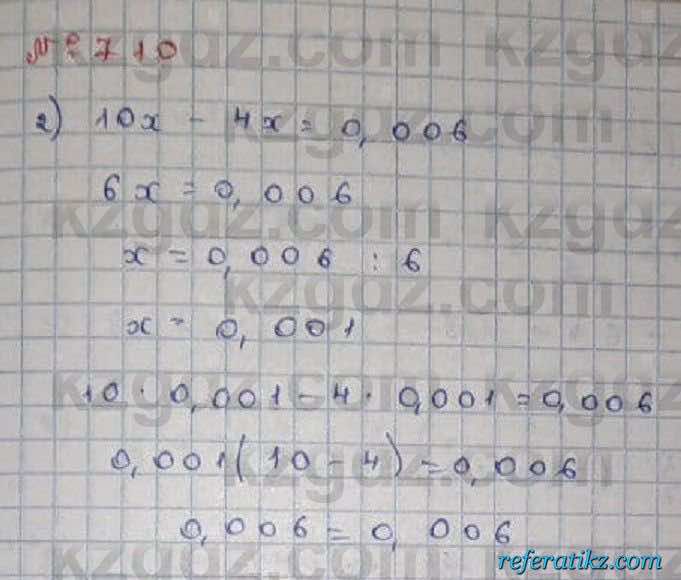 № 710
2) 10x - 4x = 0,006
6x = 0,006
x = 0,006 : 6
x = 0,001
10 · 0,001 - 4 · 0,001 = 0,006
0,001(10 - 4) = 0,006
0,006 = 0,006
kzgdz.com kzgdz.com
kzgdz.com
kzgdz.com kzgdz.com
kzgdz.com
kzgdz.com kzgdz.com
kzgdz.com
referatikz.com